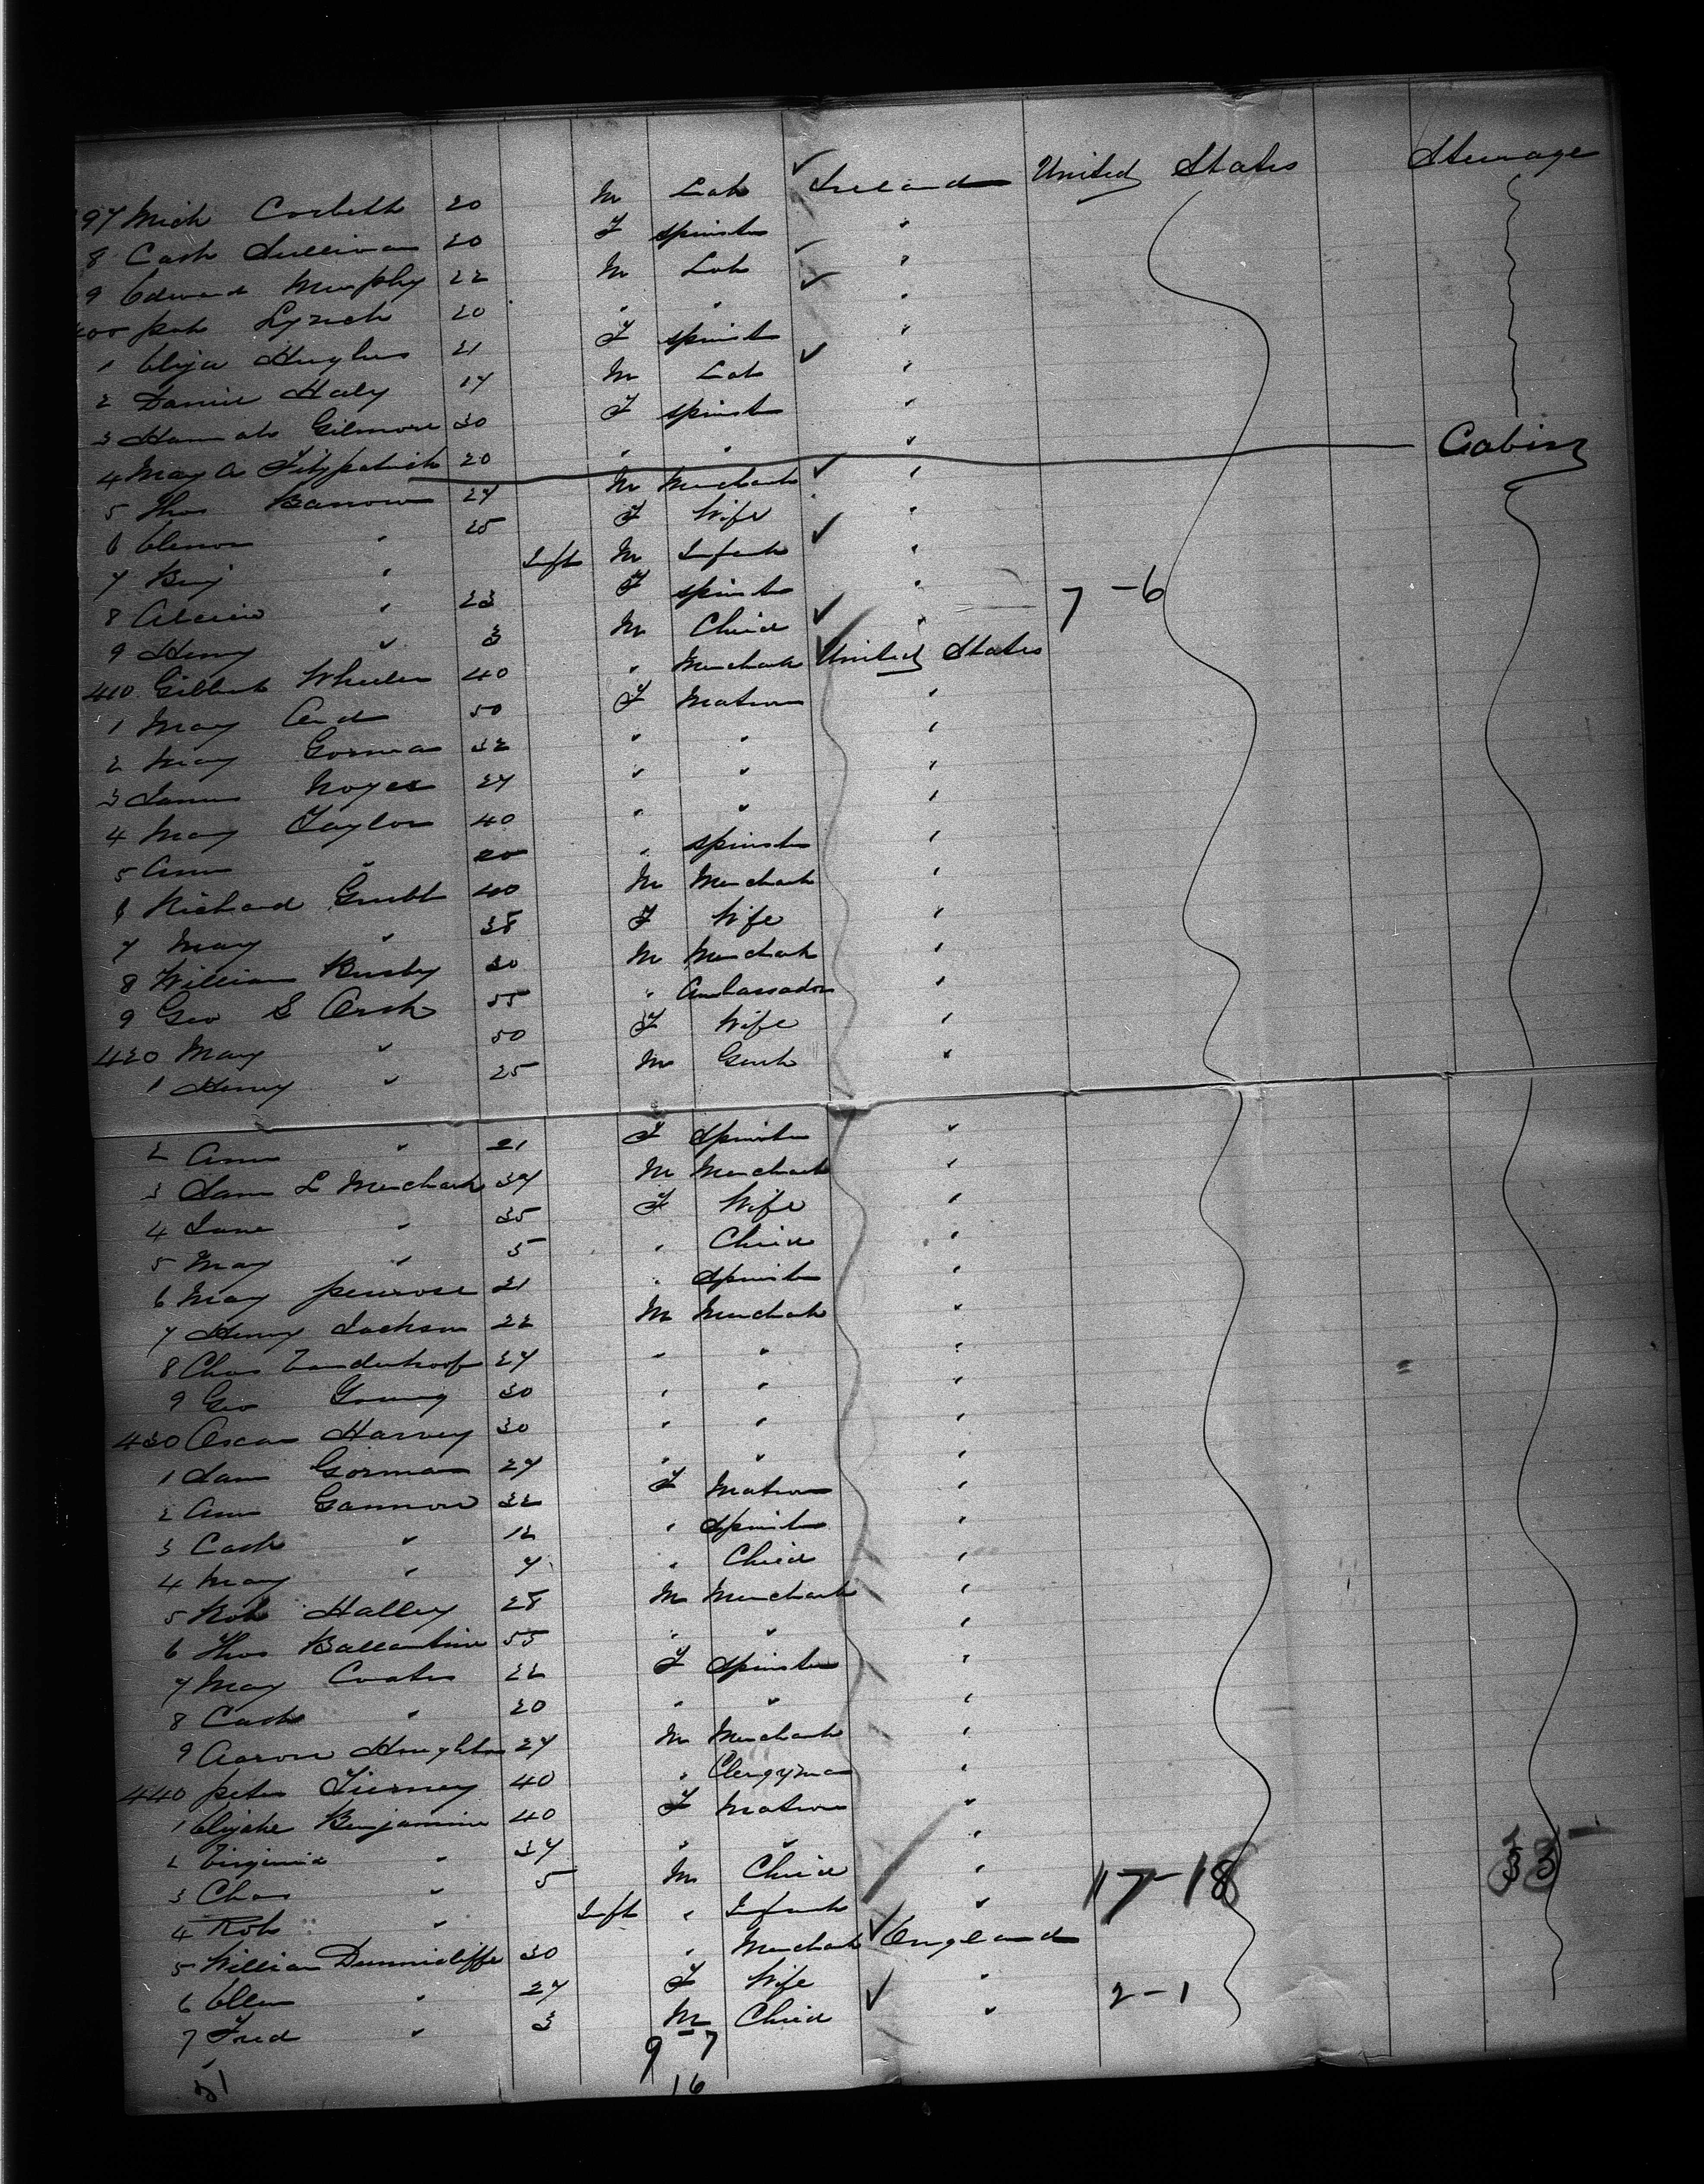 97 Mich Corbett 20 M Lab Ireland United States Steerage
8 Cath Sullivan 20 F Spinster "
9 Edward Murphy 22 M Lab "
400 Pat Lynch 20 " " "
1 Eliza Hughes 21 F Spinst "
2 Daniel Haly 17 M Lab "
3 Hannah Gilmore 30 F Spinst "
4 Mary A Fitzpatrick 20 " " " Cabin
5 Thos Barrow 27 M Merchant "
6 Elenor " 25 F Wife "
7 Benj " Inft M Infant "
8 " 23 F Spinst " 7-6
9 Henry " 3 M Child "
410 Gilbert Wheeler 40 " Merchant United States
1 Mary 50 F Matron "
2 Mary Gorman 32 " " "
3 Noyes 27 " " "
4 Mary Taylor 40 " " "
5 Ann " 20 " Spinster "
6 Richard Grubb 40 M Merchant "
7 Mary " 38 F Wife "
8 William Busby 30 M Merchant "
9 Geo S 55 " Ambassador "
420 Mary " 50 F Wife "
1 Henry " 25 M Gent "
2 Ann " 21 F Spinster "
3 Sam L Merchant 37 M Merchant "
4 Jane " 35 F Wife "
5 Mary " 5 " Child "
6 Mary Penrose 21 " Spinster "
7 Henry Jackson 22 M Merchant "
8 Chas Vanderhoof 27 " " "
9 Geo Young 30 " " "
430 Oscar Harvey 30 " " "
1 Sam Gorman 27 " " "
2 Ann Gannon 32 F Matron "
3 Cath " 12 " Spinster "
4 Mary " 7 " Child "
5 Rob Halley 28 M Merchant "
6 Thos Ballantine 55 " " "
7 Mary Coates 22 F Spinster "
8 Cath " 20 " " "
9 Aaron Houghton 27 M Merchant "
440 Peter Tierney 40 " Clergyman "
1 Benjamin 40 F Matron "
2 Virginia " 37 " " "
3 Chas " 5 M Child " 17-18
4 Rob " Inft " Infant "
5 William Dunnicliffe 30 " Merchant England
6 Ellen " 27 F Wife "
7 Fred " 3 M Child " 2-1
9-7
51 16